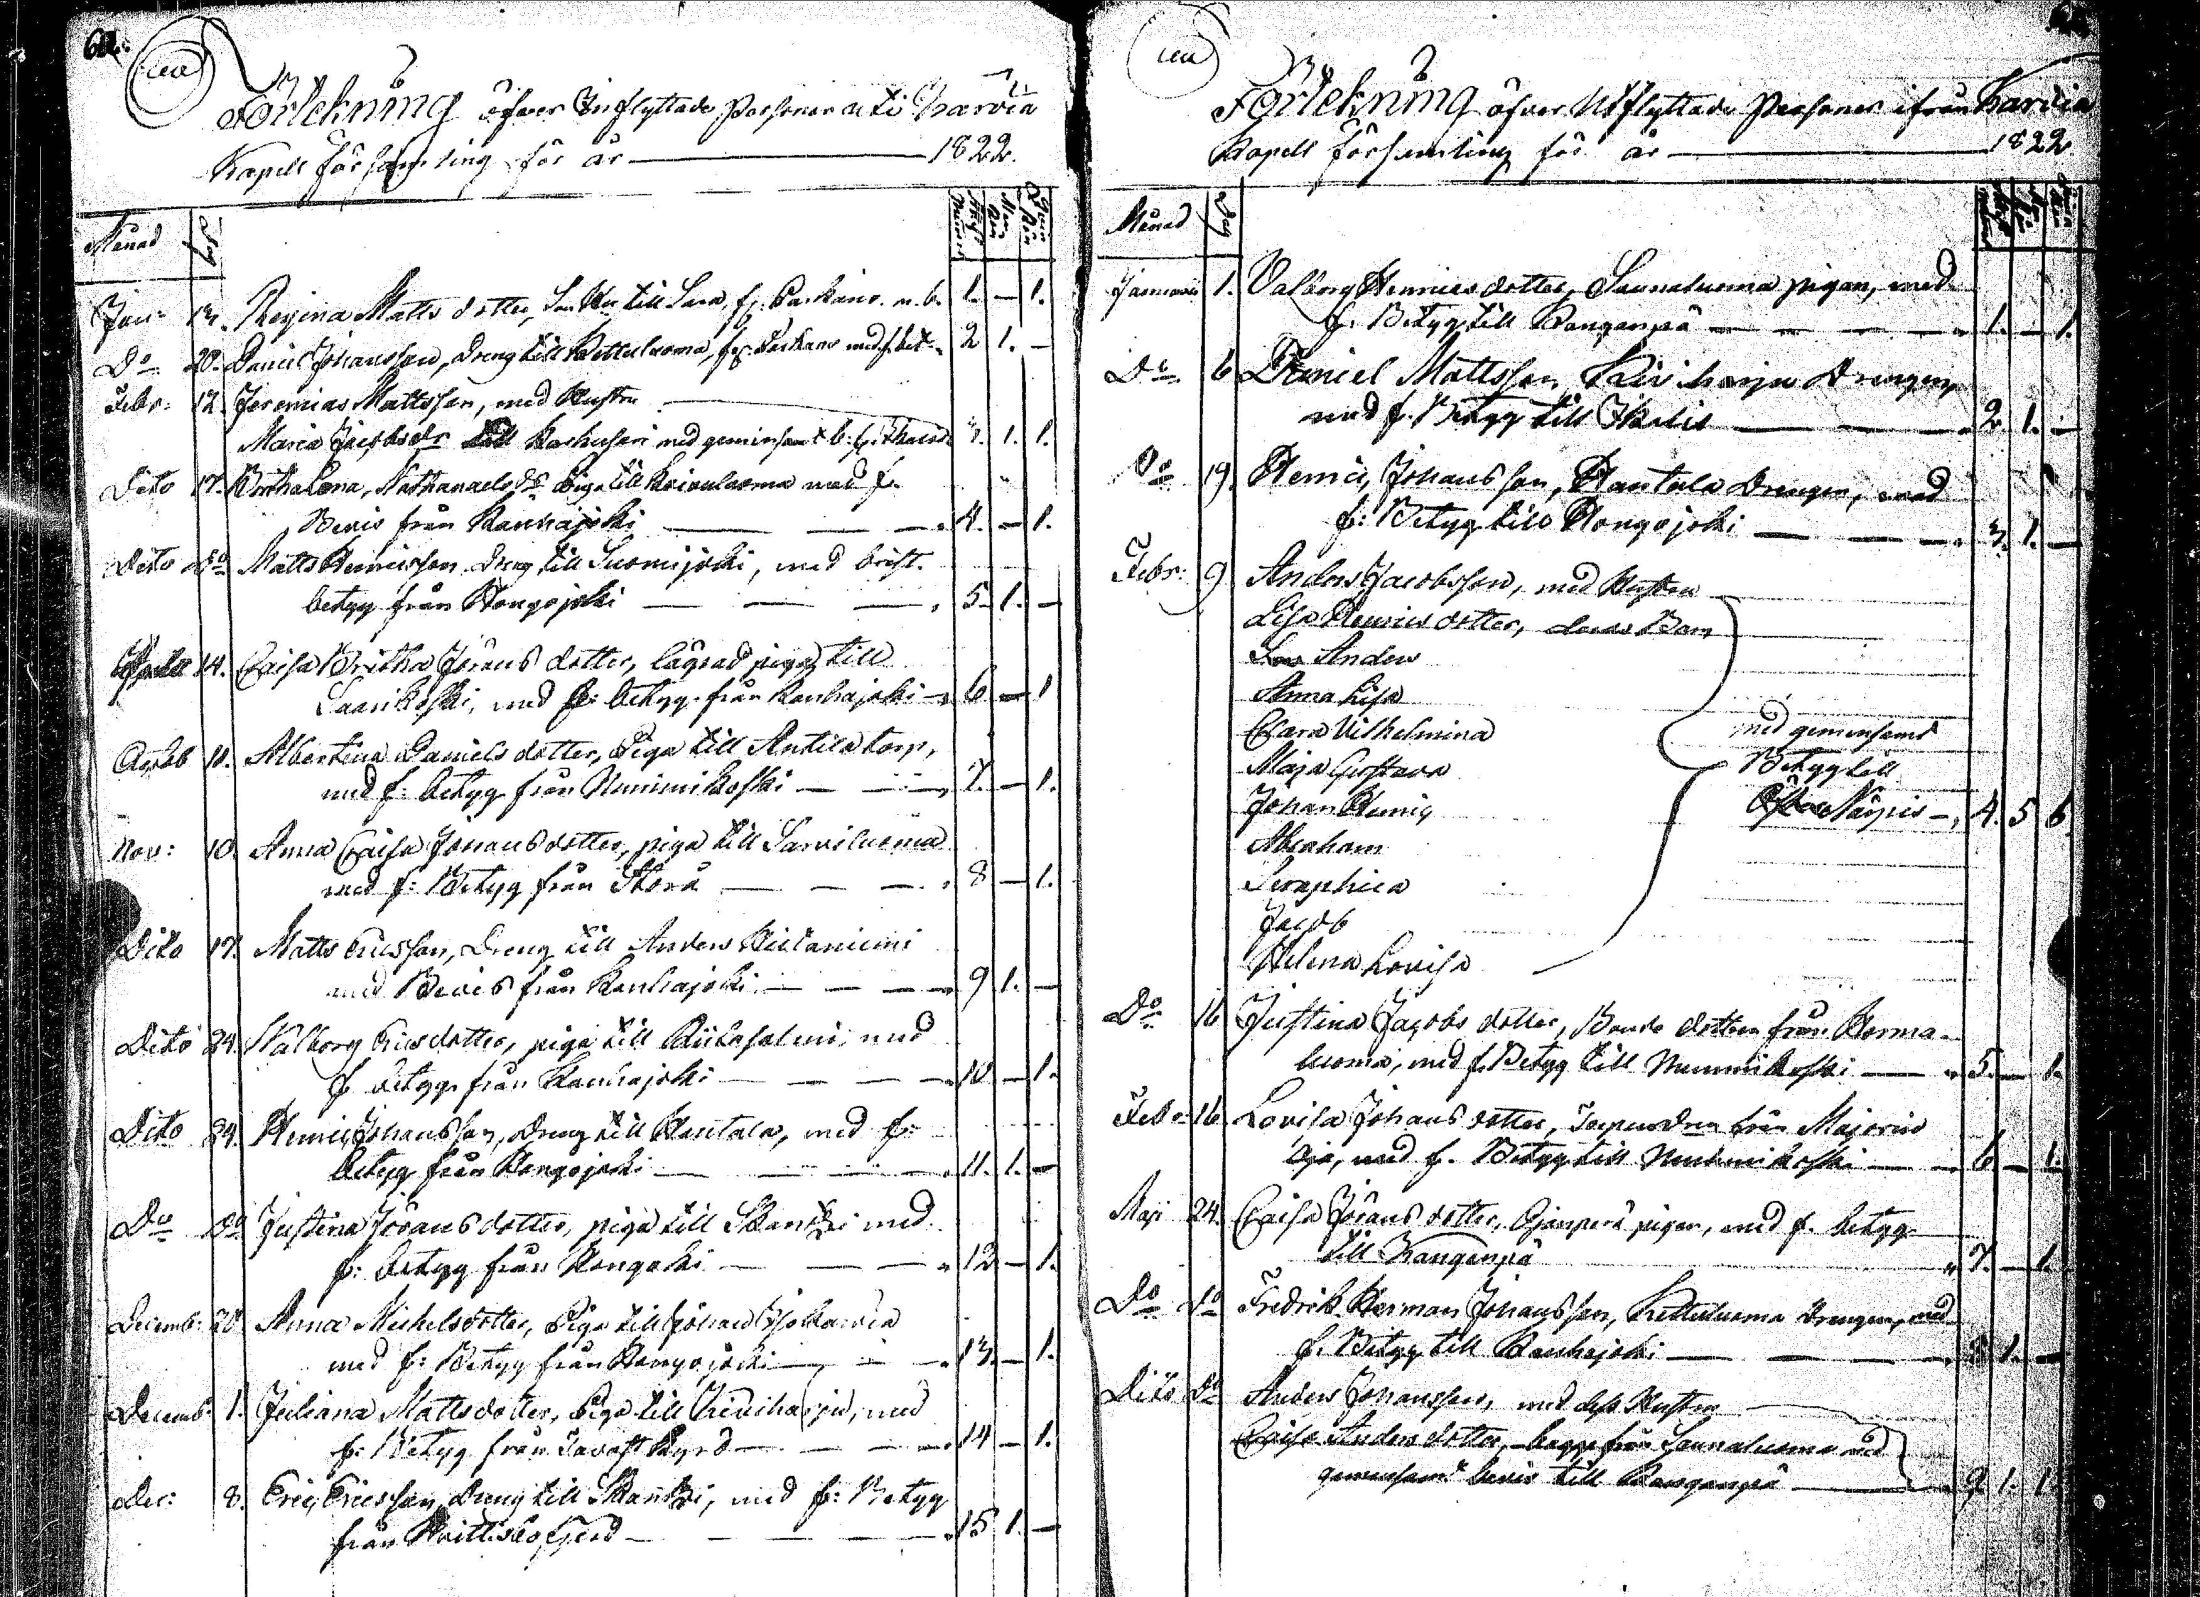 62.
Förtekning öfver Inflyttade Personer uti Karvia
Kapells församling för år — 1822.
Månad Dag
Jan: 13. Regina Matts dotter, till Sara, fr. Parkano m. b. 1. — 1.
Do 20. Daniel Johansson, Dreng till Kettuluoma, fr. Parkano med f. bet. 2 1. —
Febr: 12. Jeremias Mattsson, med Hustru
Maria Jacobsdr till med gemensamt b. fr. 3. 1. 1.
Dito 17. Britha Lena, Nathanaelsdr Piga till med f.
Bevis från Kauhajoki — 4. — 1.
Dito Do Matts Henricsson Dreng till Suomijoki, med brist.
betyg från Hongojoki — 5. 1. —
14. Caisa Britha Jörans dotter, lägrad piga, till
Saarikoski, med f: betyg från Kauhajoki — 6 — 1
11. Albertina Daniels dotter, Piga till Antila torp,
med f: betyg från Nummikoski — 7. — 1.
Nov: 10. Anna Caisa Johans dotter, piga till Sarviluoma
med f: Betyg från Storå — 8 — 1.
Dito 17. Matts Ericsson, Dreng till Anders Kiilaniemi
med Bevis från Kauhajoki — 9 1. —
Dito 24. Valborg Ericsdotter, piga till Riihisalmi, med
f. betyg från Kauhajoki — 10 — 1.
Dito 24. Henric Johansson, Dreng till Rantala, med f:
betyg från Hongojoki — 11. 1. —
Do Do Justina Jörans dotter, piga till Skantzi med
f: betyg från Hongoki — 12 — 1.
Decemb: 20. Anna Michelsdotter, Piga till Johan
med f: Betyg från Hongojoki — 13. — 1.
Decemb: 1. Juliana Mattsdotter, Piga till Kirviharju, med
f: Betyg från Tavast Kyrö — 14 — 1.
Dec: 8. Eric Ericsson, Dreng till Skantzi, med f: Betyg
från Hvittisbofjerd — 15 1. —
Förtekning öfver Utflyttade Personer ifrån Karvia
Kapells församling för år — 1822
Månad Dag
Januarii 1. Valborg Henricsdotter, Saunaluoma pigan, med
f. Betyg till Kanganpä — 1. — 1.
Do 6 Daniel Mattsson, Kirviharju Drengen,
med f. Betyg till Ikalis — 2. 1. —
Do 19. Henric Johansson, Rantala Drengen, med
f: Betyg till Hongojoki — 3. 1. —
Febr: 9 Anders Jacobsson, med Hustru
Lisa Henricsdotter, deras Barn
Anders
Anna Lisa
Clara Vilhelmina med gemensamt
Maja Gustava Betyg till
Johan Henric Närpis — 4. 5 6
Abraham
Seraphica
Jacob
Helena Lovisa
Do 16 Justina Jacobs dotter, Bonde dottren från Kerma-
luoma, med f. Betyg till Nummikoski — 5. — 1.
Febr: 16 Lovisa Johans dotter, från
oja, med f. Betyg till Nummikoski — 6 — 1.
Maji 24. Caisa Jörans dotter, Ojanperä pigan, med f. betyg
till Kangenpä — 7. — 1.
Do Do Fredrik Herman Johansson, Kettuluoma Drengen, med
f. Betyg till Kauhajoki — 8 1. —
Dito Do Anders Johansson, med dess Hustru
Caisa Anders dotter, begge från Saunaluoma med
gemensamt bevis till Kangenpä — 9. 1. 1.